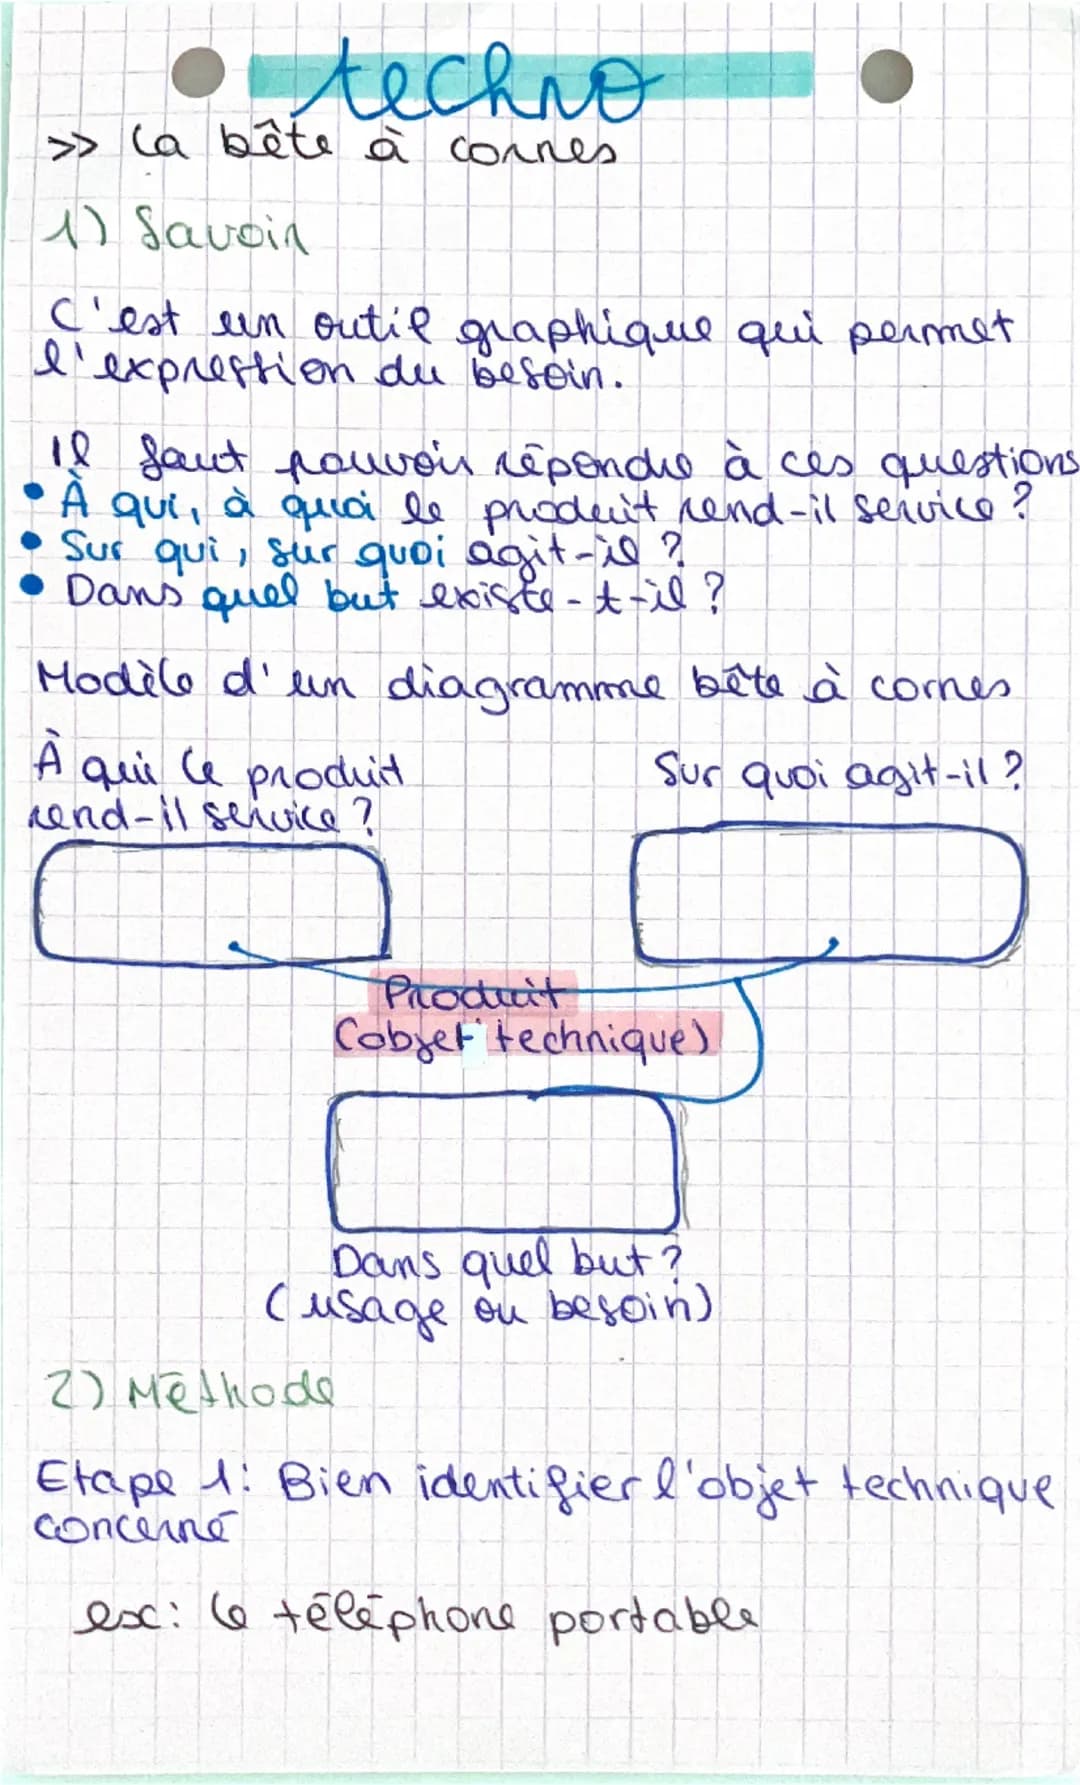 techno
>> la bête à cornes
1) Savoir
C'est un outil graphique qui permet
l'expression du besoin.
Il faut pouvoir répondre à ces questions
• À qui, à quoi le produit rend-il service ?
• Sur qui, sur quoi agit-il ?
• Dans quel but existe-t-il ?
Modèle d'un diagramme bête à cornes
À qui le produit
rend-il service ?
Sur quoi agit-il ?
Produit
(objet technique)
Dans quel but ?
(usage ou besoin)
2) Méthode
Etape 1: Bien identifier l'objet technique
concerné
ex: le téléphone portable